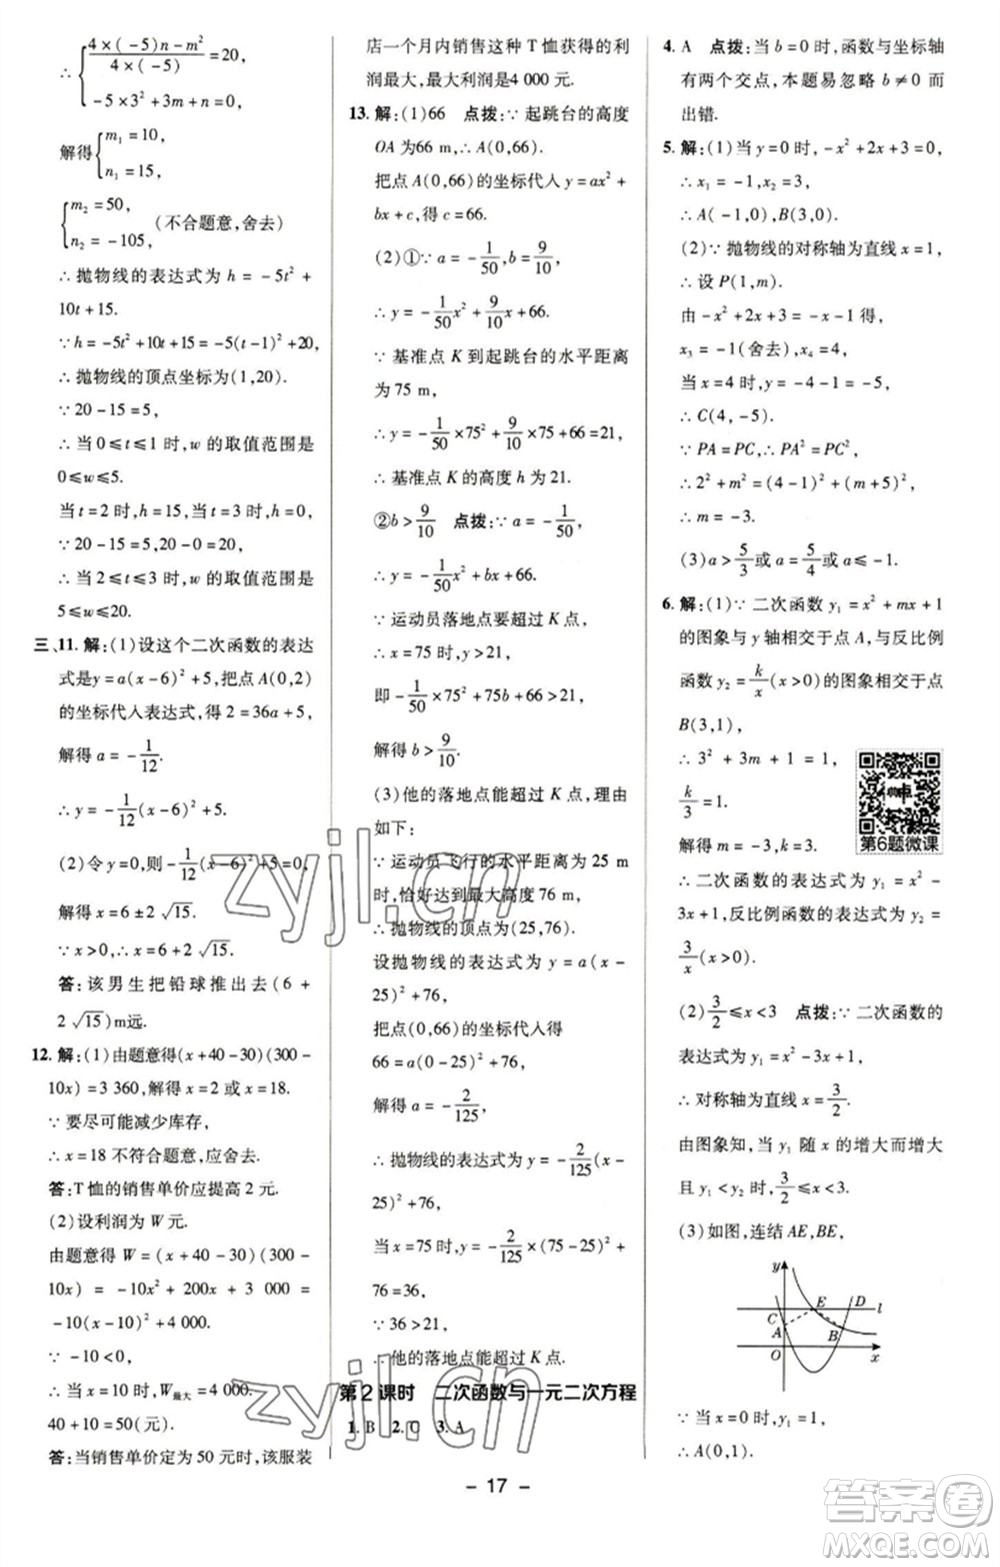 ∴{ (4×(−5)n−m²)/(4×(−5))=20,
−5×3²+3m+n=0,
解得{ m₁=10,
n₁=15,
{ m₂=50,
n₂=−105, (不合题意,舍去)
∴抛物线的表达式为 h=−5t²+
10t+15.
∵h=−5t²+10t+15=−5(t−1)²+20,
∴抛物线的顶点坐标为(1,20).
∵20−15=5,
∴当 0≤t≤1 时,w 的取值范围是
0≤w≤5.
当 t=2 时,h=15,当 t=3 时,h=0,
∵20−15=5,20−0=20,
∴当 2≤t≤3 时,w 的取值范围是
5≤w≤20.
三、11.解:(1)设这个二次函数的表达
式是y=a(x−6)²+5,把点A(0,2)
的坐标代人表达式,得 2=36a+5,
解得 a=−1/12.
∴y=−1/12(x−6)²+5.
(2)令 y=0,则−1/12(x−6)²+5=0,
解得 x=6±2√15.
∵x>0,∴x=6+2√15.
答:该男生把铅球推出去(6+
2√15)m远.
12.解:(1)由题意得(x+40−30)(300−
10x)=3 360,解得 x=2 或 x=18.
∵要尽可能减少库存,
∴x=18 不符合题意,应舍去.
答:T 恤的销售单价应提高 2 元.
(2)设利润为 W 元.
由题意得 W=(x+40−30)(300−
10x)=−10x²+200x+3 000=
−10(x−10)²+4 000.
∵−10<0,
∴当 x=10 时,W最大=4 000.
40+10=50(元).
答:当销售单价定为 50 元时,该服装
店一个月内销售这种 T 恤获得的利
润最大,最大利润是4 000 元.
13.解:(1)66 点拨:∵起跳台的高度
OA为66 m,∴A(0,66).
把点A(0,66)的坐标代人y=ax²+
bx+c,得 c=66.
(2)①∵a=−1/50,b=9/10,
∴y=−1/50x²+9/10x+66.
∵基准点 K 到起跳台的水平距离
为 75 m,
∴y=−1/50×75²+9/10×75+66=21,
∴基准点 K 的高度 h 为 21 m.
②b>9/10 点拨:∵a=−1/50,
∴y=−1/50x²+bx+66.
∵运动员落地点要超过 K 点,
∴x=75 时,y>21,
即−1/50×75²+75b+66>21,
解得 b>9/10.
(3)他的落地点能超过 K 点,理由
如下:
∵运动员飞行的水平距离为 25 m
时,恰好达到最大高度 76 m,
∴抛物线的顶点为(25,76).
设抛物线的表达式为 y=a(x−
25)²+76,
把点(0,66)的坐标代人得
66=a(0−25)²+76,
解得 a=−2/125,
∴抛物线的表达式为 y=−2/125(x−
25)²+76,
当 x=75 时,y=−2/125×(75−25)²+
76=36,
∵36>21,
∴他的落地点能超过 K 点.
第2课时 二次函数与一元二次方程
1. B 2. C 3. A
4. A 点拨:当 b=0 时,函数与坐标轴
有两个交点,本题易忽略 b≠0 而
出错.
5.解:(1)当 y=0时,−x²+2x+3=0,
∴x₁=−1,x₂=3,
∴A(−1,0),B(3,0).
(2)∵抛物线的对称轴为直线 x=1,
∴设 P(1,m).
由−x²+2x+3=−x−1得,
x₃=−1(舍去),x₄=4,
当 x=4 时,y=−4−1=−5,
∴C(4,−5).
∵PA=PC,∴PA²=PC²,
∴2²+m²=(4−1)²+(m+5)²,
∴m=−3.
(3)a>5/3或 a=5/4或 a≤−1.
6.解:(1)∵二次函数 y₁=x²+mx+1
的图象与 y 轴相交于点 A,与反比例
函数 y₂=k/x(x>0)的图象相交于点
B(3,1),
∴3²+3m+1=1,
k/3=1,
解得 m=−3,k=3.
第6题微课
∴二次函数的表达式为 y₁=x²−
3x+1,反比例函数的表达式为 y₂=
3/x(x>0).
(2)3/2≤x<3 点拨:∵二次函数的
表达式为 y₁=x²−3x+1,
∴对称轴为直线 x=3/2.
由图象知,当 y₁ 随 x 的增大而增大
且 y₁<y₂ 时,3/2≤x<3.
(3)如图,连结 AE,BE,
y
E
D
l
C
A
B
O
x
∵当 x=0 时,y₁=1,
∴A(0,1).
zyjl.cn
zyjl.cn
－ 17 －
答案圈
MXQE.COM